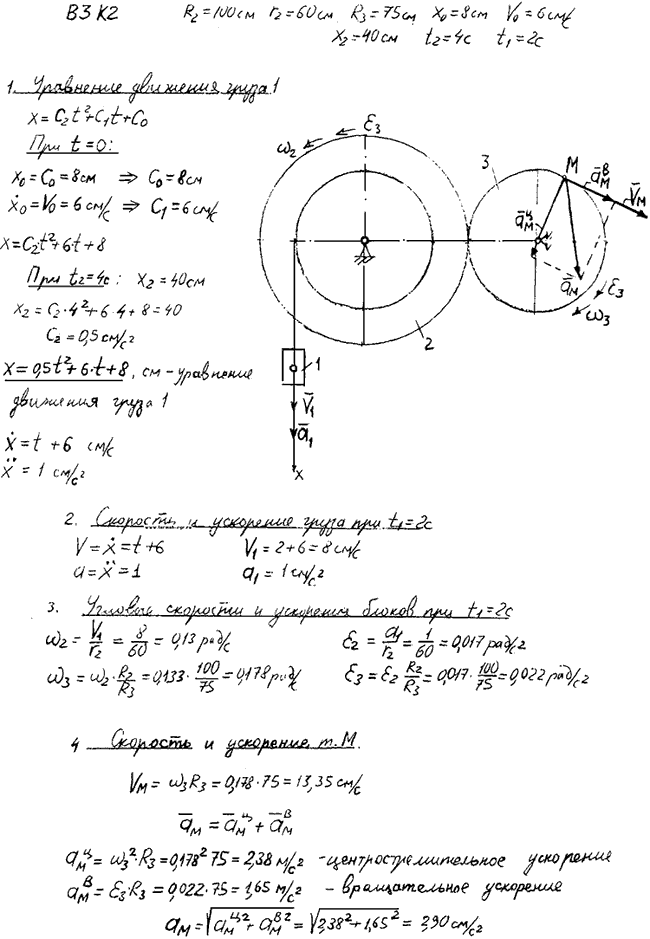 В3 К2
R₂=100см r₂=60см R₃=75см x₀=8см V₀=6см/с
x₂=40см t₂=4с t₁=2с
1. Уравнение движения груза 1
x=C₂t²+C₁t+C₀
При t=0:
x₀=C₀=8см ⇒ C₀=8см
ẋ₀=V₀=6 см/с ⇒ C₁=6см/с
x=C₂t²+6t+8
При t₂=4с: x₂=40см
x₂=C₂·4²+6·4+8=40
C₂=0,5см/с²
x=0,5t²+6·t+8, см-уравнение
движения груза 1
ẋ=t+6 см/с
ẍ=1 см/с²
ω₂
ε₃
3
M
a̅ᴍᴮ
V̅ᴍ
a̅ᴍц
a̅ᴍ
ε₃
ω₃
2
1
V̅₁
a̅₁
x
2. Скорость и ускорение груза при t₁=2с
V=ẋ=t+6 V₁=2+6=8см/с
a=ẍ=1 a₁=1см/с²
3. Угловые скорости и ускорения блоков при t₁=2с
ω₂=V₁/r₂=8/60=0,13рад/с ε₂=a₁/r₂=1/60=0,017рад/с²
ω₃=ω₂·R₂/R₃=0,133·100/75=0,178рад/с ε₃=ε₂R₂/R₃=0,017·100/75=0,022рад/с²
4 Скорость и ускорение т.М.
Vᴍ=ω₃R₃=0,178·75=13,35см/с
a̅ᴍ=a̅ᴍц+a̅ᴍᴮ
aᴍц=ω₃²·R₃=0,178²75=2,38м/с² -центростремительное ускорение
aᴍᴮ=ε₃·R₃=0,022·75=1,65м/с² - вращательное ускорение
aᴍ=√(aᴍц²+aᴍᴮ²)=√(2,38²+1,65²)=2,90см/с²